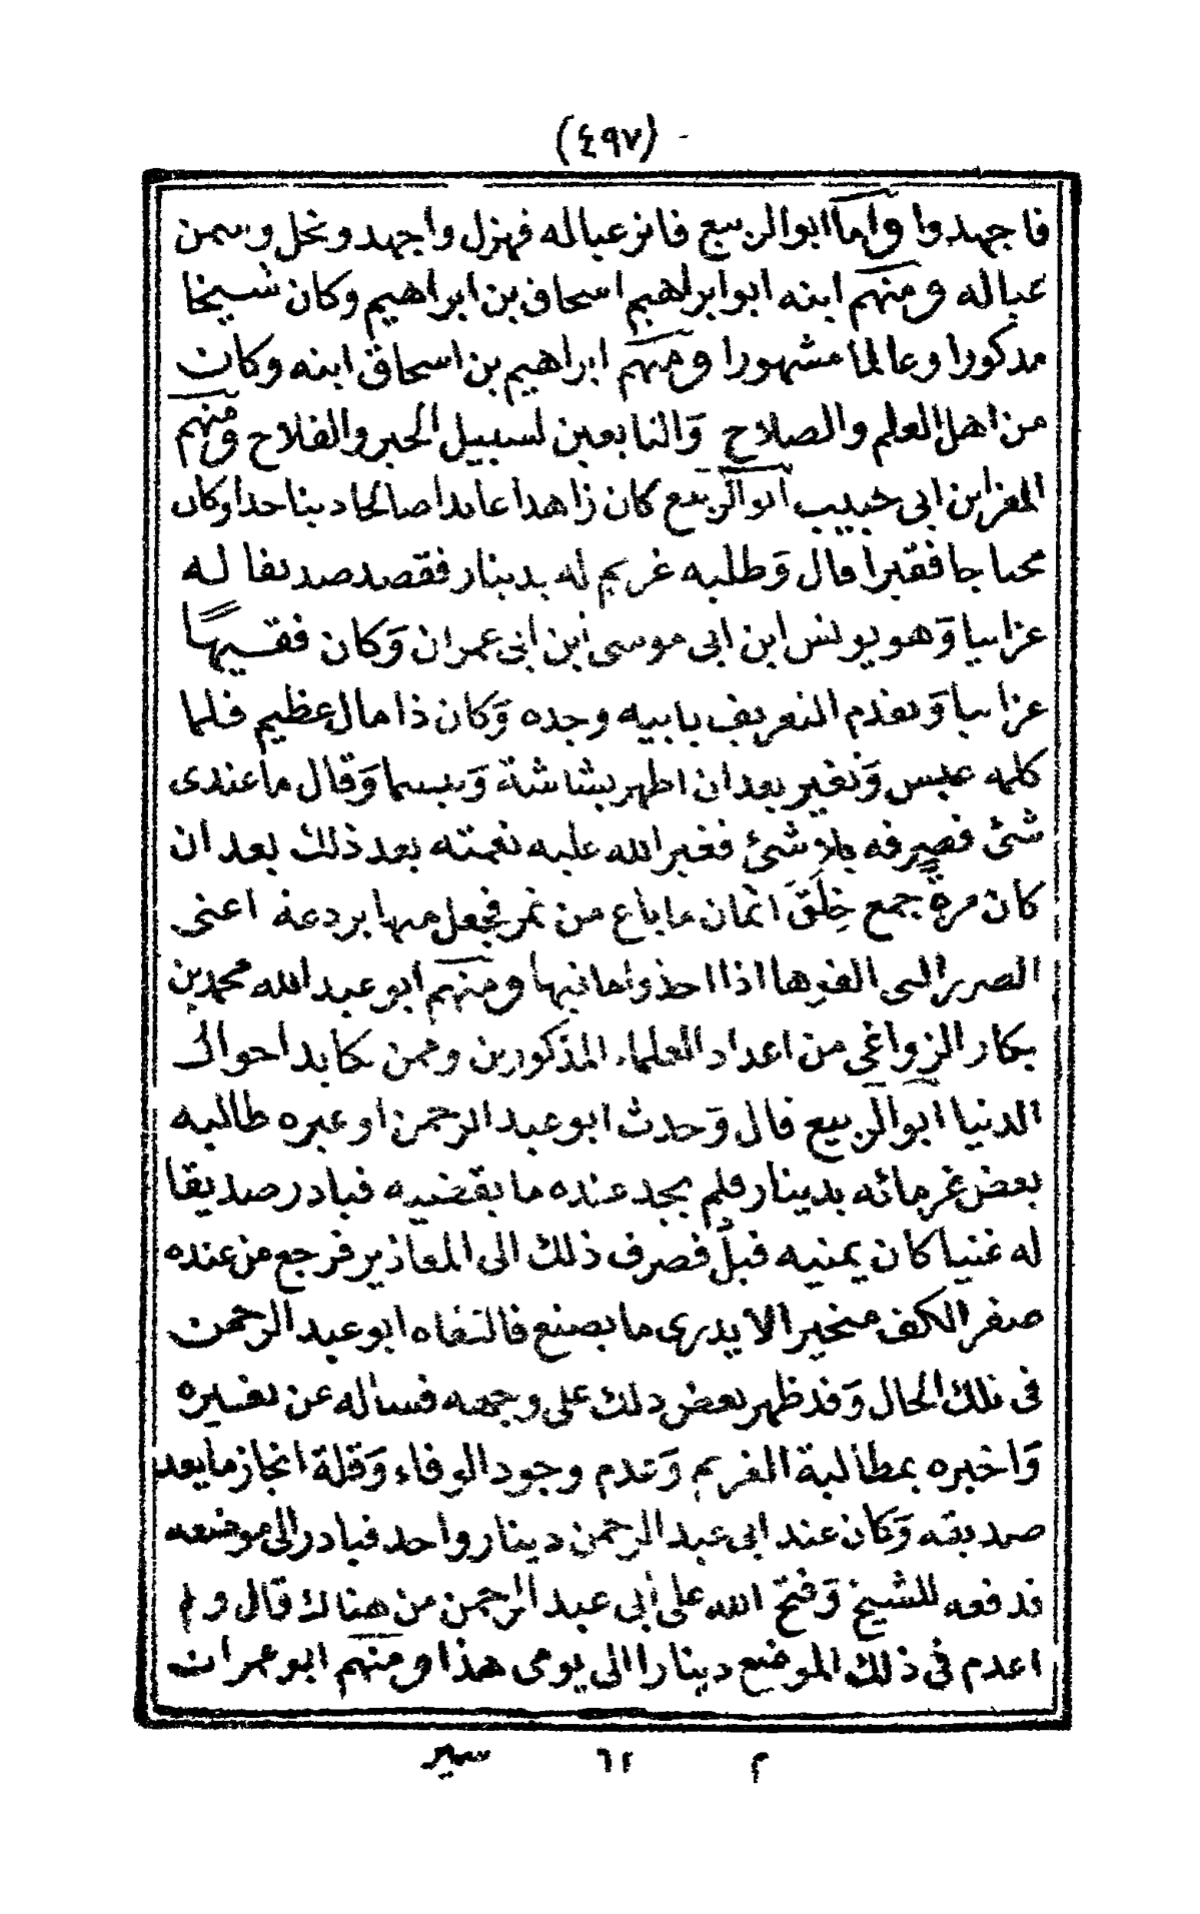 (٤٩٧)
فاجهدوا واما ابوالربيع فاثر عياله فهزل واجهد ونحل وسمن
عياله ومنهم ابنه ابوابراهيم اسحاق بن ابراهيم وكان شيخا
مذكورا وعالما مشهورا ومنهم ابراهيم بن اسحاق ابنه وكان
من اهل العلم والصلاح والتابعين لسبيل الخير والفلاح ومنهم
المعز ابن ابى حبيب ابوالربيع كان زاهدا عابدا صالحا دينا جدا وكان
محتاجا فقيرا قال وطلبه غريم له بدينار فقصد صديقا له
عزابيا وهو يونس ابن ابى موسى ابن ابى عمران وكان فقيها
عزابيا وتقدم التعريف بابيه وجده وكان ذا مال عظيم فلما
كلمه عبس وتغير بعد ان اظهر بشاشة وتبسما وقال ما عندى
شئ فصرفه بلا شئ فغير الله عليه نعمته بعد ذلك بعد ان
كان مرة جمع خلق اثمان ما باع من تمر فجعل منها بردعة اعنى
الصرر التى الفوها اذا اخذوا ما فيها ومنهم ابوعبدالله محمد بن
بكار الزواغى من اعداد العلماء المذكورين وممن كابد احوال
الدنيا ابوالربيع قال وحدث ابوعبدالرحمن اوغيره طالبه
بعض غرمائه بدينار فلم يجد عنده ما يقضيه فبادر صديقا
له غنيا كان يمنيه قبل فصرف ذلك الى المعاذير فرجع من عنده
صفر الكف متحيرا لا يدرى ما يصنع فالتقاه ابوعبدالرحمن
فى تلك الحال وقد ظهر بعض ذلك على وجهه فساله عن تغيره
واخبره بمطالبة الغريم وعدم وجود الوفاء وقلة انجاز ما يعد
صديقه وكان عند ابى عبدالرحمن دينار واحد فبادر الى موضعه
فدفعه للشيخ وفتح الله على ابى عبدالرحمن من هناك قال ولم
اعدم فى ذلك الموضع دينارا الى يومى هذا ومنهم ابوعمران
م ٦٢ سير